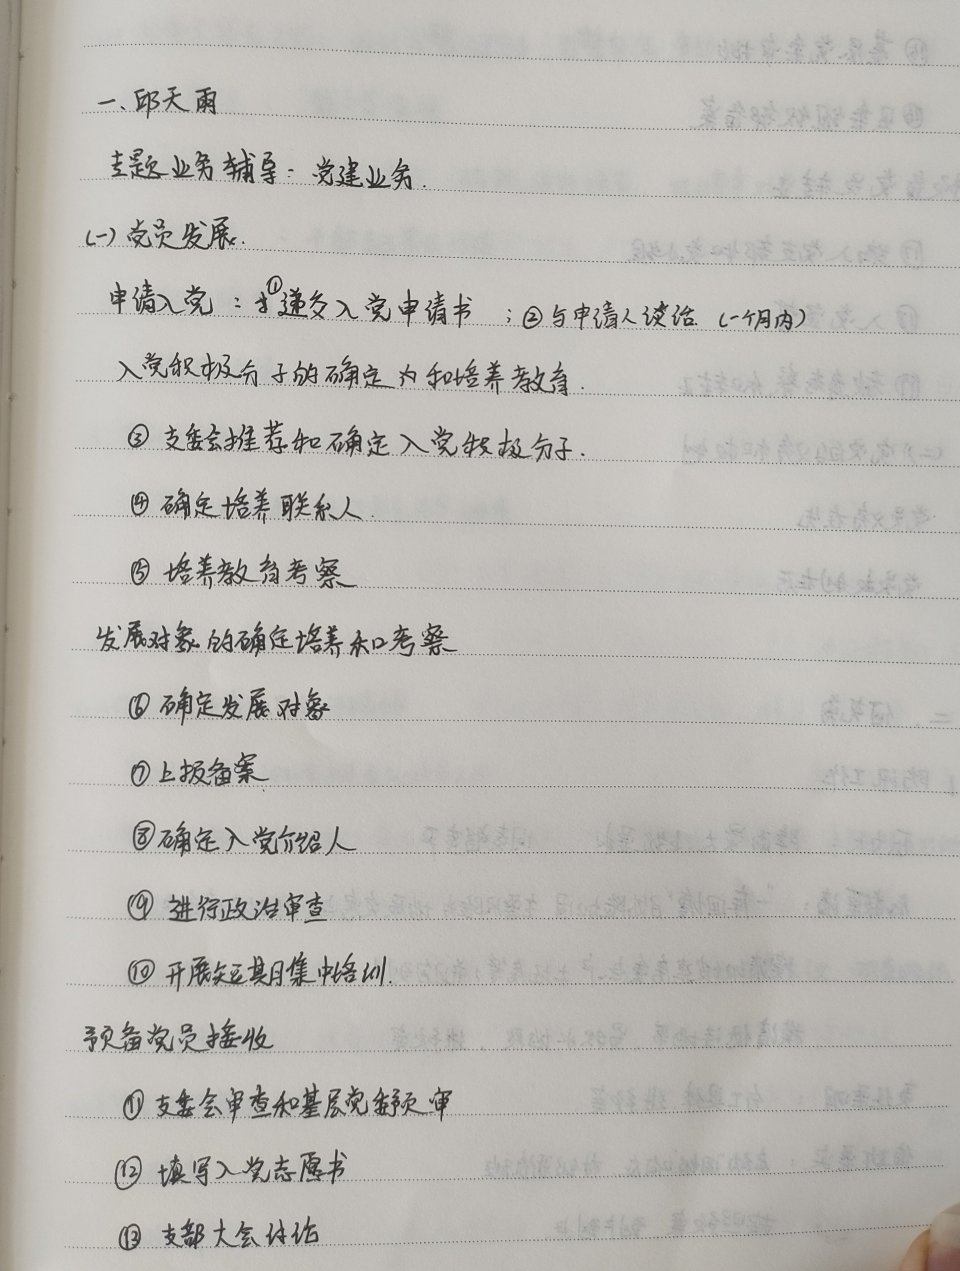 一、邱天雨
主题业务辅导：党建业务.
(一)党员发展.
申请入党：①递交入党申请书；②与申请人谈话（一个月内）
入党积极分子的确定和培养教育.
③支委会推荐和确定入党积极分子.
④确定培养联系人.
⑤培养教育考察
发展对象的确定培养和考察
⑥确定发展对象
⑦上报备案
⑧确定入党介绍人
⑨进行政治审查
⑩开展短期集中培训.
预备党员接收
⑪支委会审查和基层党委预审
⑫填写入党志愿书
⑬支部大会讨论